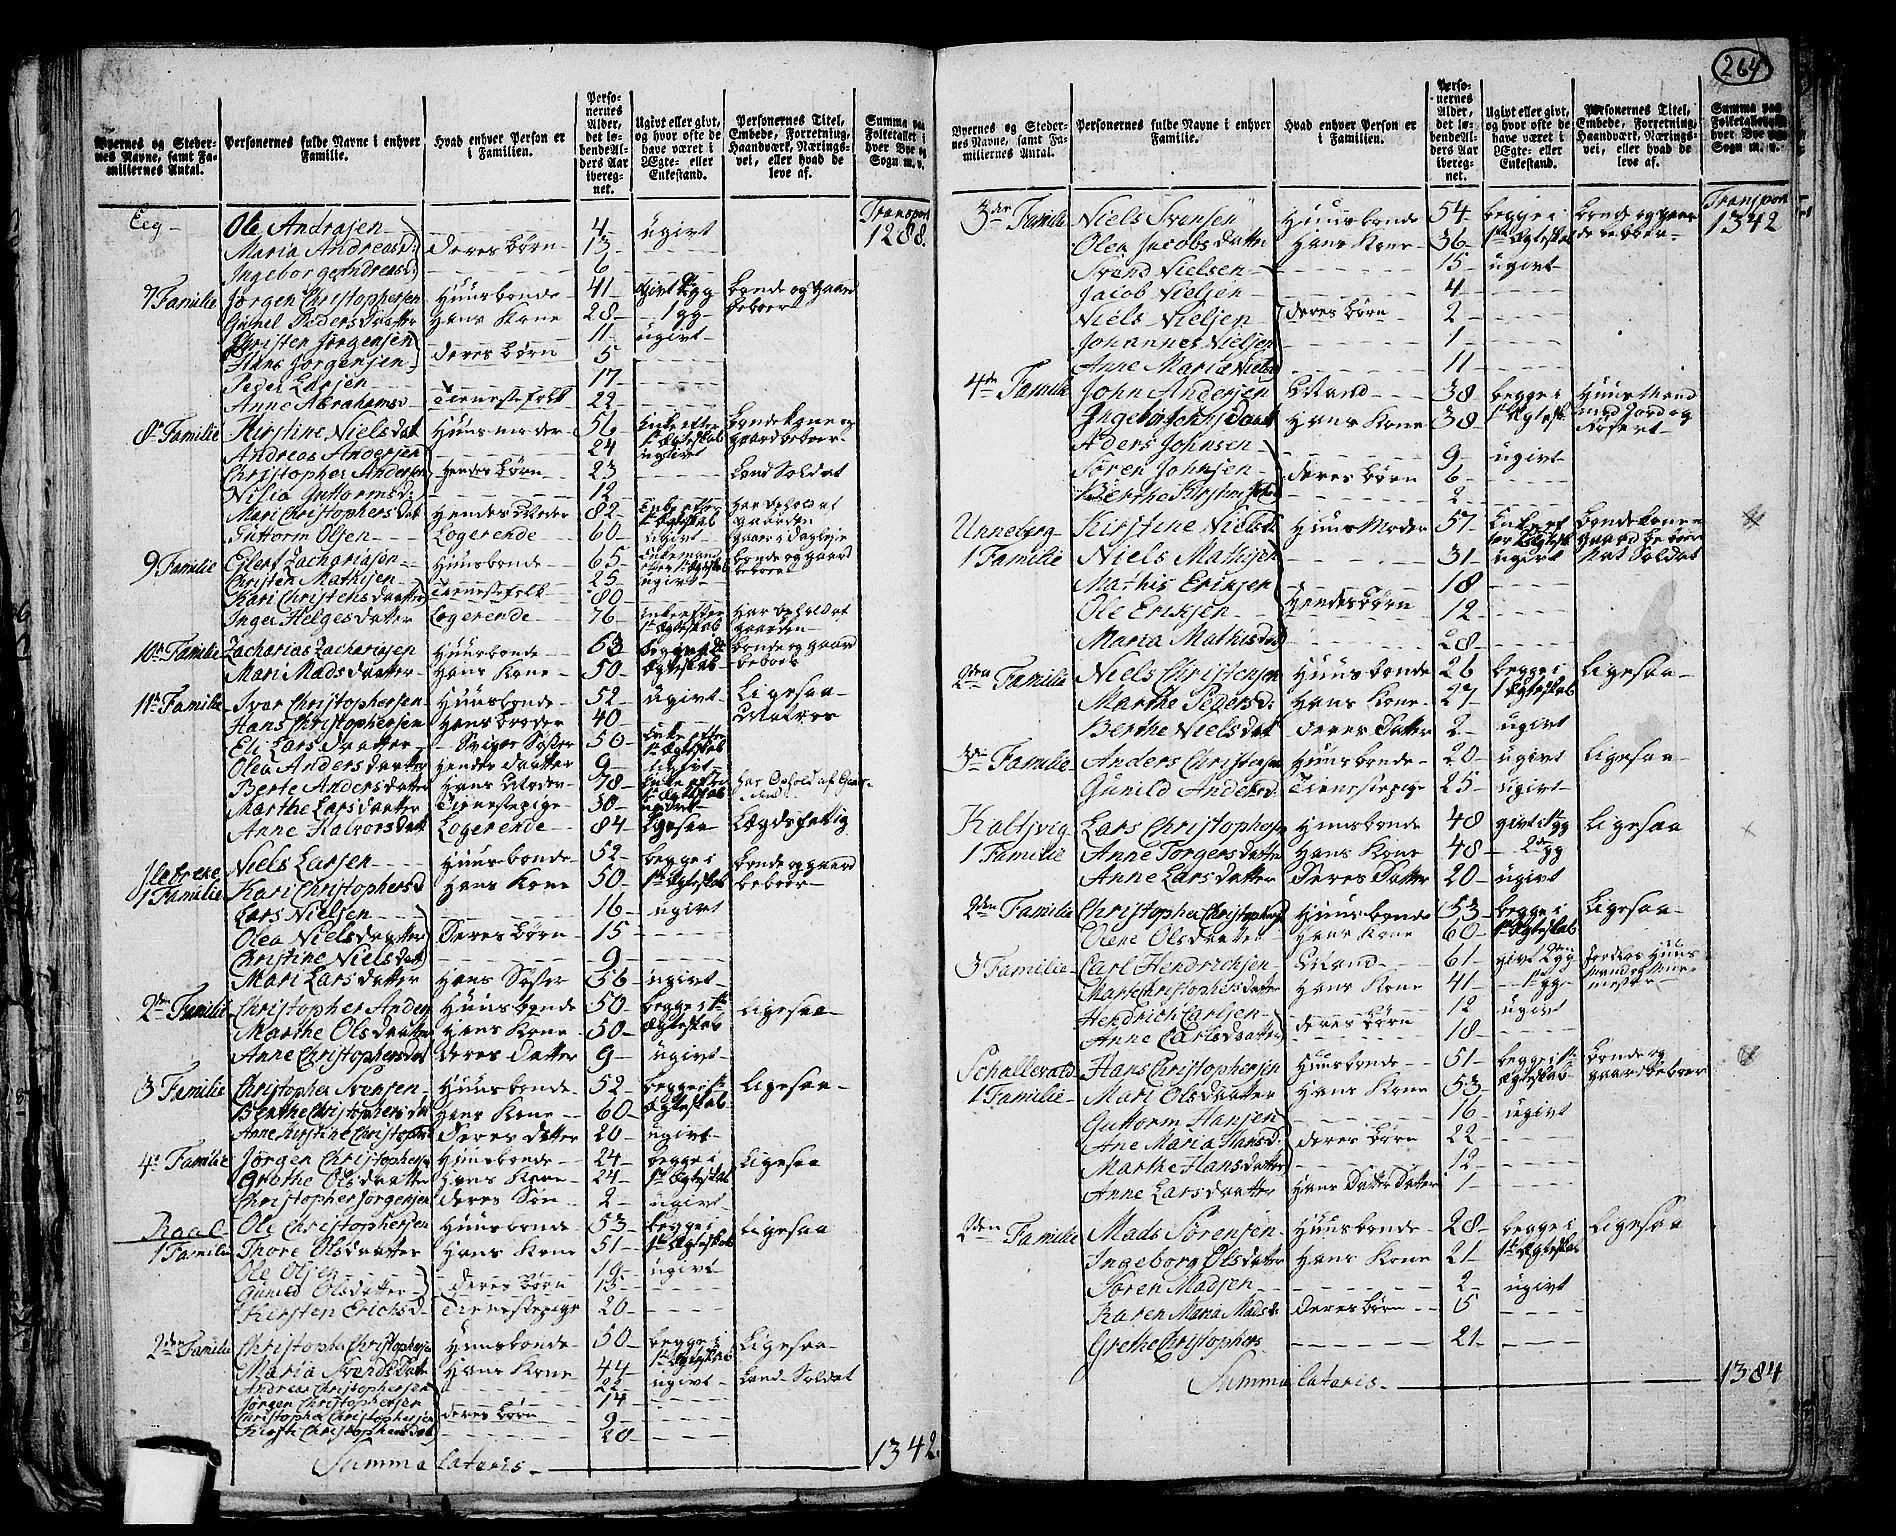 264
Byernes og Stedernes Navne, samt Familiernes Antal. | Personernes fulde Navne i enhver Familie. | Hvad enhver Person er i Familien. | Personernes Alder, det løbende Alders Aar iberegnet. | Ugivt eller givt, og hvor ofte de have været i Ægte- eller Enkestand. | Personernes Titel, Embede, Forretning, Haandværk, Næringsvei, eller hvad de leve af. | Summa paa Folketallet i hver Bye og Sogn m. v.
Eeg | Ole Andrasen | | 4 | ugivt | | Transport 1288
Maria Andreasd: | deres børn | 13
Ingeborg Andreasd: | | 6
7 Familie | Jørgen Christophersen | Huusbonde | 41 | | bonde og gaard beboer
Gunil Peders Datter | Hans Kone | 28 | 1 gg
Christen Jørgensen | | 11 | ugivt
Hans Jørgensen | deres børn | 5
Peder Larsen | | 17
Anne Abrahamsd | Tienestefolk | 22
8de Familie | Kirstine Niels dat | Huusmoder | 56 | Enke efter 1ste Ægteskab | bondekone og gaardbeboer
Andreas Andersen | | 24 | ugivt
Christopher Andersen | hendes børn | 23 | | Land Soldat
Nilia Guttormsd: | | 12
Mari Christophers dat | Hendes Moder | 82 | Enke efter 1ste Ægteskab | har ophold af gaarden
Guttorm Olsen | Logerende | 60 | ugivt
9 Familie | Eilert Zachariasen | Huusbonde | 65 | Enkemand | bonde og gaard beboer
Christen Mathisen | | 25 | ugivt
Kari Christens daatter | Tienestefolk | 80
Inger Helges datter | Logerende | 76 | Enke efter 1ste Ægteskab | Har ophold af gaarden
10de Familie | Zacharias Zachariasen | Huusbonde | 63 | begge i Ægteskab | bonde og gaard beboer
Mari Mads daatter | Hans Kone | 50
11te Familie | Ivar Christophersen | Huusbonde | 52 | ugivt | Ligesaa
Hans Christophersen | Hans broder | 40 | | Matros
Eli Lars daatter | Sviger Søster | 50 | Enke efter 1ste Ægteskab
Olea Anders daatter | Hendes daatter | 9 | ugivt
Berte Anders datter | Hans Moder | 78 | Enke efter 1ste Ægteskab | har Ophold af Gaarden
Marthe Lars daatter | Tienestepige | 30 | ugivt
Anne Halvors datt | Logerende | 84 | Ligesaa | Lægdsfattig
1 Familie | Niels Larsen | Huusbonde | 52 | begge i 1ste Ægteskab | bonde og gaard beboer
Kari Christophersd | Hans Kone | 50
Lars Nielsen | | 16 | ugivt
Olea Niels daatter | Deres børn | 15
Christine Niels dat | | 9
Mari Lars datter | Hans Søster | 56 | ugivt
2den Familie | Christopher Anders | Huusbonde | 50 | begge i 1ste Ægteskab | Ligesaa
Marthe Ols daatter | Hans Kone | 50
Anne Christophers dat | deres Datter | 9 | ugivt
3 Familie | Christopher Svensen | Huusbonde | 52 | begge i 1ste Ægteskab | Ligesaa
Berthe Christophers da | Hans Kone | 60
Anne Kirstine Christoph | Deres datter | 20 | ugivt
4de Familie | Jørgen Christophersen | Huusbonde | 24 | begge i 1ste Ægteskab | Ligesaa
Grethe Ols daatter | Hans Kone | 24
Christopher Jørgensen | deres Søn | 2 | ugivt
Raael | Ole Christophersen | Huusbonde | 53 | begge i 1ste Ægteskab | Ligesaa
1 Familie | Thore Ols daatter | Hans Kone | 51
Ole Olsen | | 19 | ugivt
Gunild Ols datter | deres børn | 13
Kirsten Erichs d | Tienestepige | 20
2den Familie | Christopher Christophersen | Huusbonde | 50 | begge i 1ste Ægteskab | Ligesaa
Maria Svends Datter | Hans Kone | 44
Andreas Christophersen | | 22 | ugivt | Land-Soldat
Jørgen Christophersen | | 14
Christopher Christophersen | deres børn | 9
Christophers dat | | 20
Summa lateris | 1342
Byernes og Stedernes Navne, samt Familiernes Antal. | Personernes fulde Navne i enhver Familie. | Hvad enhver Person er i Familien. | Personernes Alder, det løbende Alders Aar iberegnet. | Ugivt eller givt, og hvor ofte de have været i Ægte- eller Enkestand. | Personernes Titel, Embede, Forretning, Haandværk, Næringsvei, eller hvad de leve af. | Summa paa Folketallet i hver Bye og Sogn m. v.
3die Familie | Niels Svensen | Huusbonde | 54 | begge i 1ste Ægteskab | bonde og gaardebeboer | Transport 1342
Olea Jacobs Datter | Hans Kone | 36
Svend Nielsen | | 15 | ugivt
Jacob Nielsen | | 4
Niels Nielsen | deres børn | 2
Johannes Nielsen | | 1
Anne Maria Nielsd | | 11
4de Familie | John Andersen | Mand | 38 | begge i 1ste Ægtesk | Huusmand med Jord og
Ingebor Datt | Hans Kone | 38
Aders Johnsen | | 9 | ugivt
Søren Johnsen | deres børn | 6
Berthe | | 2
Unneberg | Kirstine Nielsd | Huusmoder | 57 | Enke efter Ægtesk | bondekone gaard beboer
1 Familie | Niels Mathisen | | 31 | ugivt | Nat Soldat
Mathis Eriksen | | 18
Ole Eriksen | Hendes børn | 12
Maria Mathis dat | | 28
2den Familie | Niels Christensen | Huusbonde | 26 | begge i 1 Ægteskab | Ligesaa
Marthe Peders d: | Hans Kone | 27
Berthe Niels dat | deres Datter | 2 | ugivt
3die Familie | Anders Christensen | Huusbonde | 20 | ugivt | Ligesaa
Gunild Andersd: | Tienestepige | 25 | ugivt
Kaltsvig | Lars Christophersen | Huusbonde | 48 | givt 1te gg | Ligesaa
1 Familie | Anne Torgers datter | Hans Kone | 48 | 2den gg
Anne Lars datter | Deres Datter | 20 | ugivt
2den Familie | Christopher Christophers | Huusbonde | 53 | begge i 1ste Ægteskab | Ligesaa
Olene Ols daatter | Hans Kone | 60
3 Familie | Carl Hendrichsen | Mand | 61 | givt 2 gg | Jordløs Huusmand og Muurmester
Mari Christophers datter | Hans Kone | 41 | 1te gg
Hendrich Carlsen | | 12 | ugivt
Anne Carls daatter | deres børn | 18
Schallevald | Hans Christophersen | Huusbonde | 51 | begge i 1ste Ægteskab | bonde og gaardbeboer
1 Familie | Mari Ols datter | Hans Kone | 53
Guttorm Hansen | | 16 | ugivt
Ane Maria Hans d: | deres børn | 22
Marthe Hans datter | | 12
Anne Lars daatter | Hans Datter Datter | 1
2den Familie | Mads Sørensen | Huusbonde | 28 | begge i 1ste Ægteskab | Ligesaa
Ingeborg Ols datter | Hans Kone | 21
Søren Madsen | | 2 | ugivt
Karen Maria Mads d | deres børn | 5
Grethe Christophers | | 21
Summa lateris | 1384